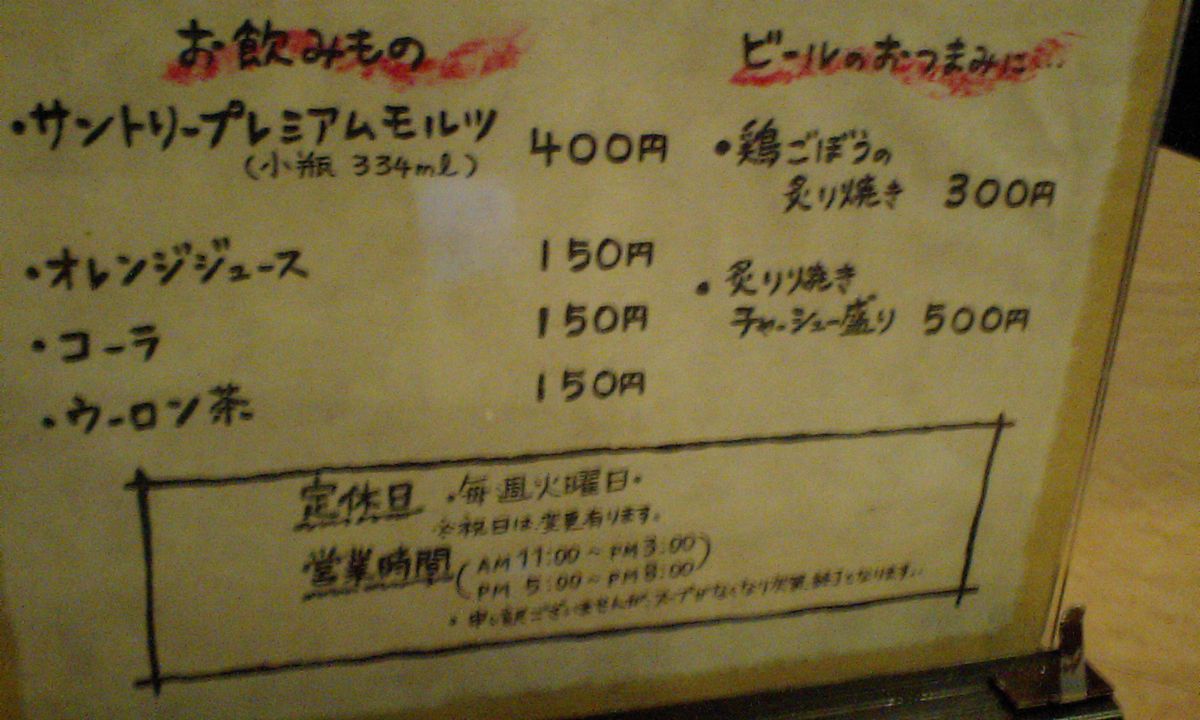 お飲みもの
・サントリープレミアムモルツ 400円
(小瓶 334ml)
・オレンジジュース 150円
・コーラ 150円
・ウーロン茶 150円
ビールのおつまみに…
・鶏ごぼうの
炙り焼き 300円
・炙り焼き
チャーシュー盛り 500円
定休日 ・毎週火曜日・
※祝日は、変更有ります。
営業時間 (AM 11:00～PM 3:00)
PM 5:00～PM 8:00
・申し訳ございませんが、スープがなくなり次第、終了となります。